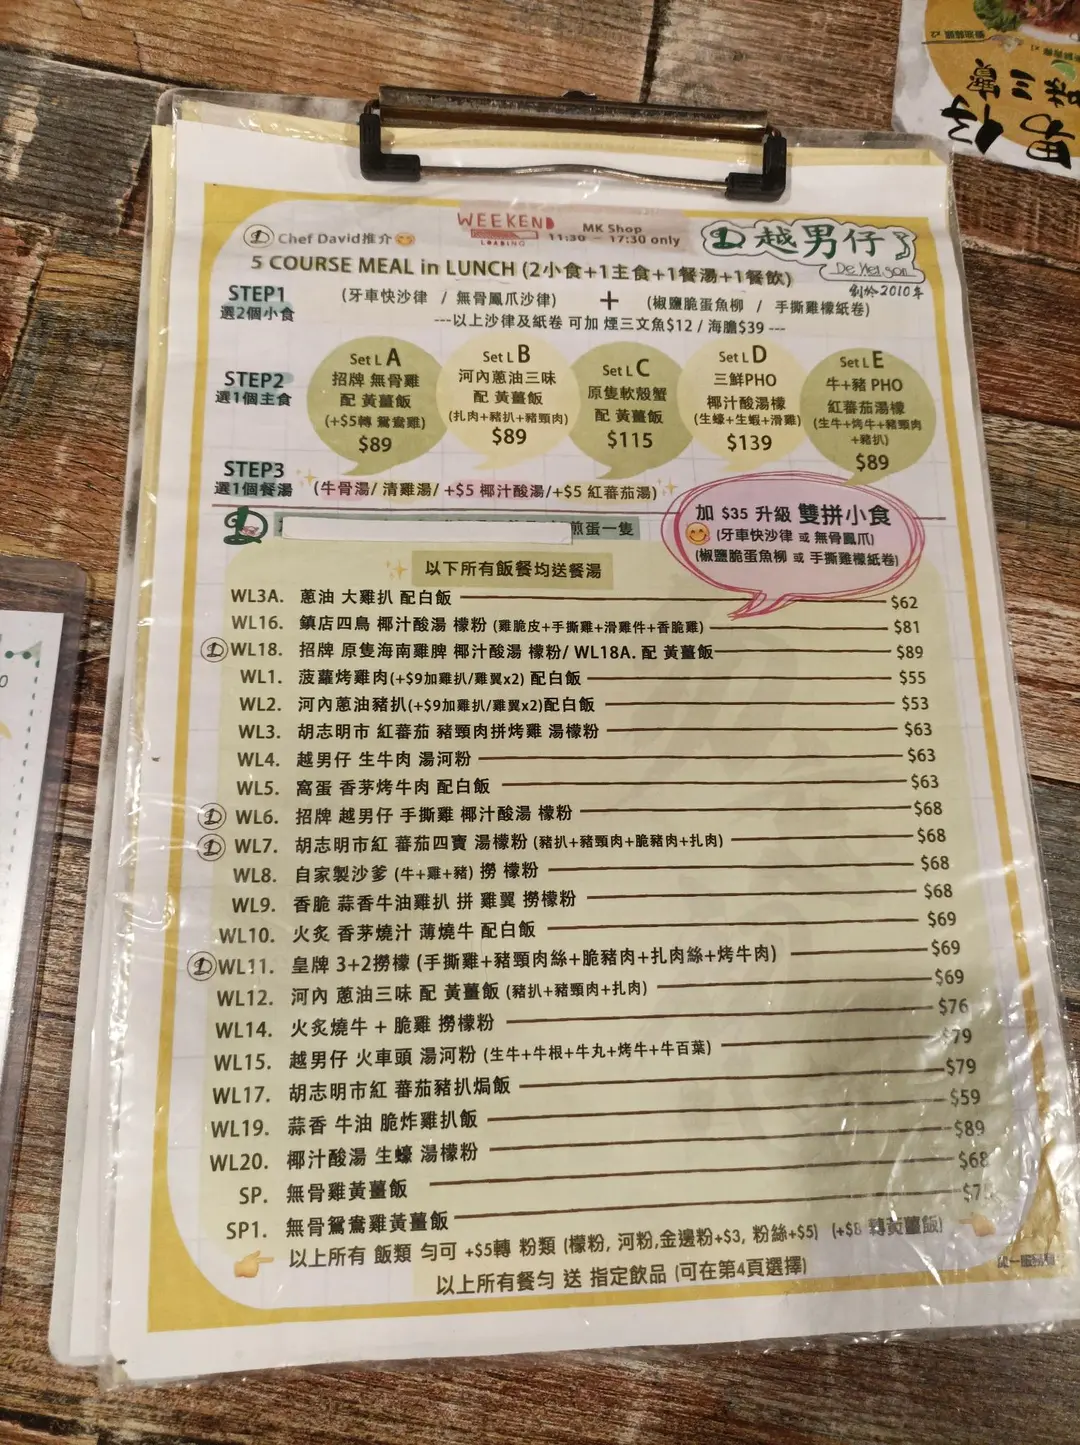 WEEKEND
LOADING
MK Shop
11:30 - 17:30 only
Chef David推介
越男仔
De Viet Son
創於2010年
5 COURSE MEAL in LUNCH (2小食+1主食+1餐湯+1餐飲)
STEP1
選2個小食
(牙車快沙律 / 無骨鳳爪沙律) + (椒鹽脆蛋魚柳 / 手撕雞檬紙卷)
---以上沙律及紙卷 可加 煙三文魚$12 / 海膽$39 ---
STEP2
選1個主食
Set L A
招牌 無骨雞
配 黃薑飯
(+$5轉 鴛鴦雞)
$89
Set L B
河內蔥油三味
配 黃薑飯
(扎肉+豬扒+豬頸肉)
$89
Set L C
原隻軟殼蟹
配 黃薑飯
$115
Set L D
三鮮PHO
椰汁酸湯檬
(生蠔+生蝦+滑雞)
$139
Set L E
牛+豬 PHO
紅蕃茄湯檬
(生牛+烤牛+豬頸肉
+豬扒)
$89
STEP3
選1個餐湯
(牛骨湯/ 清雞湯/ +$5 椰汁酸湯/+$5 紅蕃茄湯)
加 $35 升級 雙拼小食
(牙車快沙律 或 無骨鳳爪)
(椒鹽脆蛋魚柳 或 手撕雞檬紙卷)
煎蛋一隻
以下所有飯餐均送餐湯
WL3A. 蔥油 大雞扒 配白飯 $62
WL16. 鎮店四鳥 椰汁酸湯 檬粉 (雞脆皮+手撕雞+滑雞件+香脆雞) $81
WL18. 招牌 原隻海南雞髀 椰汁酸湯 檬粉/ WL18A. 配 黃薑飯 $89
WL1. 菠蘿烤雞肉(+$9加雞扒/雞翼x2) 配白飯 $55
WL2. 河內蔥油豬扒(+$9加雞扒/雞翼x2)配白飯 $53
WL3. 胡志明市 紅蕃茄 豬頸肉拼烤雞 湯檬粉 $63
WL4. 越男仔 生牛肉 湯河粉 $63
WL5. 窩蛋 香茅烤牛肉 配白飯 $63
WL6. 招牌 越男仔 手撕雞 椰汁酸湯 檬粉 $68
WL7. 胡志明市紅 蕃茄四寶 湯檬粉 (豬扒+豬頸肉+脆豬肉+扎肉) $68
WL8. 自家製沙爹 (牛+雞+豬) 撈 檬粉 $68
WL9. 香脆 蒜香牛油雞扒 拼 雞翼 撈檬粉 $68
WL10. 火炙 香茅燒汁 薄燒牛 配白飯 $69
WL11. 皇牌 3+2撈檬 (手撕雞+豬頸肉絲+脆豬肉+扎肉絲+烤牛肉) $69
WL12. 河內 蔥油三味 配 黃薑飯 (豬扒+豬頸肉+扎肉) $69
WL14. 火炙燒牛 + 脆雞 撈檬粉 $76
WL15. 越男仔 火車頭 湯河粉 (生牛+牛根+牛丸+烤牛+牛百葉) $79
WL17. 胡志明市紅 蕃茄豬扒焗飯 $79
WL19. 蒜香 牛油 脆炸雞扒飯 $59
WL20. 椰汁酸湯 生蠔 湯檬粉 $89
SP. 無骨雞黃薑飯 $68
SP1. 無骨鴛鴦雞黃薑飯
以上所有 飯類 勻可 +$5轉 粉類 (檬粉, 河粉,金邊粉+$3, 粉絲+$5) (+$8 轉黃薑飯)
以上所有餐勻 送 指定飲品 (可在第4頁選擇)